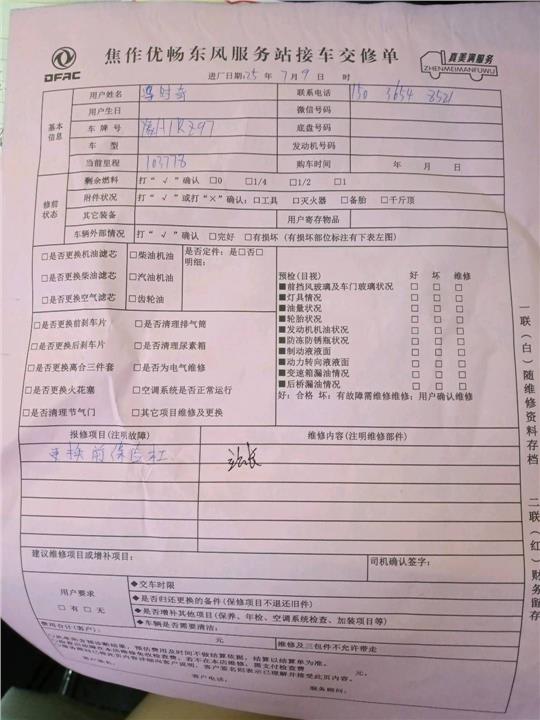 DFAC
焦作优畅东风服务站接车交修单
真美满服务
ZHENMEIMANFUWU
进厂日期:25 年 7 月 9 日 时
基本信息
用户姓名
联系电话 150
用户生日
微信号码
车 牌 号
底盘号码
车 型
发动机号码
当前里程 103778
购车时间 年 月 日
修前状态
剩余燃料 打“√”确认 □0 □1/4 □1/2 □1
附件状况 打“√”或打“×”确认:□工具 □灭火器 □备胎 □千斤顶
其它装备 用户寄存物品
车辆外部情况 打“√”确认 □完好 □有损坏 (有损坏部位标注有下表左图)
□是否更换机油滤芯 □柴油机油 是否定件:是□否□
明细:
□是否更换柴油滤芯 □汽油机油
□是否更换空气滤芯 □齿轮油
□是否更换前刹车片 □是否清理排气筒
□是否更换后刹车片 □是否清理尿素箱
□是否更换离合三件套 □是否为电气维修
□是否更换火花塞 □空调系统是否正常运行
□是否清理节气门 □其它项目维修及更换
预检(目视) 好 坏 维修
■前挡风玻璃及车门玻璃状况 □ □ □
■灯具情况 □ □ □
■油量状况 □ □ □
■轮胎状况 □ □ □
■发动机机油状况 □ □ □
■防冻防锈瓶状况 □ □ □
■制动液液面 □ □ □
■动力转向液液面 □ □ □
■变速箱漏油情况 □ □ □
■后桥漏油情况 □ □ □
好:合格 坏:有故障需维修维修:用户确认维修
报修项目(注明故障) 维修内容(注明维修部件)
更换前保险杠 站长
建议维修项目或增补项目: 司机确认签字:
用户要求
□ 有 □ 无
◆交车时限
◆是否归还更换的备件(保修项目不退还旧件)
◆是否增补其他项目(保养、年检、空调系统检查、加装项目等)
◆车辆是否需要清洁:
费用合计(客户): 元 维修及三包件不允许带走
客户签名: 客户电话: 服务顾问:
一联(白)随维修资料存档
二联(红)财务留存